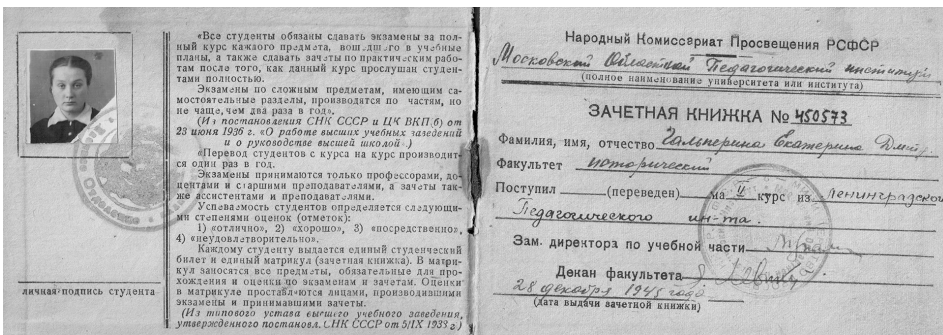 «Все студенты обязаны сдавать экзамены за пол-
ный курс каждого предмета, вошедшего в учебные
планы, а также сдавать зачеты по практическим рабо-
там после того, как данный курс прослушан студен-
тами полностью.
Экзамены по сложным предметам, имеющим са-
мостоятельные разделы, производятся по частям, но
не чаще, чем два раза в год».
(Из постановления СНК СССР и ЦК ВКП(б) от
23 июня 1936 г. «О работе высших учебных заведений
и о руководстве высшей школой».)
«Перевод студентов с курса на курс производит-
ся один раз в год.
Экзамены принимаются только профессорами, до-
центами и старшими преподавателями, а зачеты так-
же ассистентами и преподавателями.
Успеваемость студентов определяется следующи-
ми степенями оценок (отметок):
1) «отлично», 2) «хорошо», 3) «посредственно»,
4) «неудовлетворительно».
Каждому студенту выдается единый студенческий
билет и единый матрикул (зачетная книжка). В матри-
кул заносятся все предметы, обязательные для про-
хождения и оценки по экзаменам и зачетам. Оценки
в матрикуле проставляются лицами, производившими
экзамены и принимавшими зачеты.
(Из типового устава высшего учебного заведения,
утвержденного постановл. СНК СССР от 5/IX 1933 г.)
личная подпись студента
Народный Комиссариат Просвещения РСФСР
Московский Областной Педагогический институт
(полное наименование университета или института)
ЗАЧЕТНАЯ КНИЖКА № 450573
Фамилия, имя, отчество Гальперина Екатерина Дмитр.
Факультет исторический
Поступил (переведен) на II курс из Ленинградского
Педагогического ин-та.
Зам. директора по учебной части
Декан факультета
28 декабря 1945 года
(дата выдачи зачетной книжки)